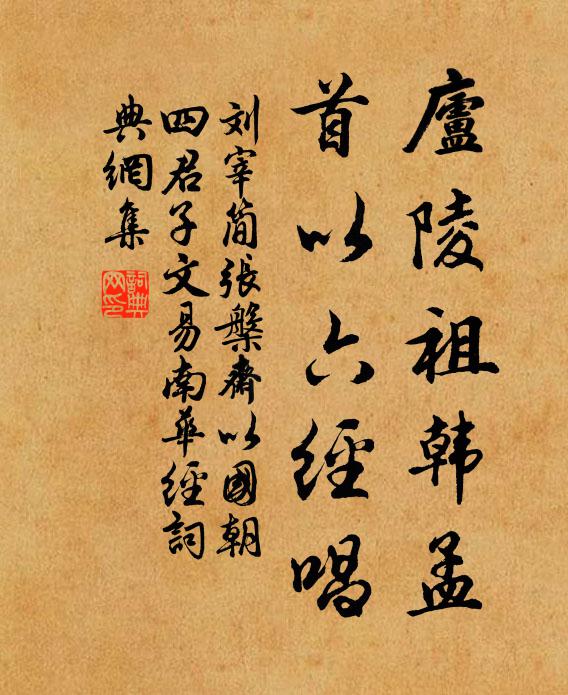 廬陵祖韩孟
首以六經唱
刘宰简張槃齋以國朝
四君子文易南華經詞
典網集
詞典
网印